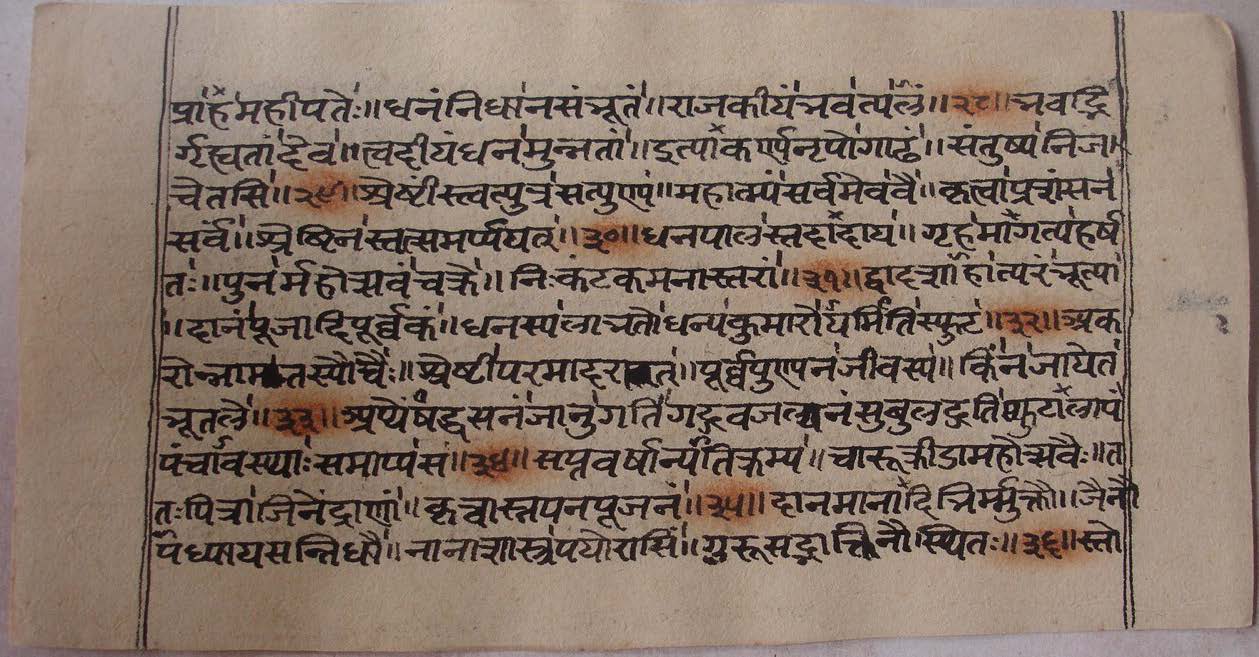 प्राह महीपतेः॥ धनं निधानसंभूतं॥ राजकीयं भवत्यलं॥ २८॥ भवद्भि
र्गृह्यतां देव॥ त्वदीयं धनमुन्नतां॥ नृपो गाढं॥ संतुष्य निजा
चेतसि॥ २९॥ श्रेष्टीस्त्वत्पुत्रसत्पुण्य॥ महात्म्यं सर्वमेव वै॥ कृत्वा प्रशंसन
सर्वं॥ श्रेष्टिनस्तत्समर्प्पयत्॥ ३०॥ धनपालस्तदादाय॥ गृहमागत्य हर्ष
तः॥ पुनर्महोत्सवं चक्रे॥ निःकंटकमनास्तरां॥ ३१॥ द्वादशाहात्परं भूत्या
॥ दानं पूजादिपूर्व्वकं॥ धनस्य लाभतो धन्यकुमारो यमिति स्फुटं॥ ३२॥ अक
रोन्नाम तस्योच्चैः॥ श्रेष्टी परमादरात्॥ पूर्व्वपुण्येन जीवस्य॥ किं न जायेत
भूतले॥ ३३॥ जानुगति
पंचावस्थाः समाप्य सं॥ ३४॥ सप्तवर्षान्यतिक्रम्य॥ चारूक्रीडामहोत्सवैः॥ त
तः पित्रा जिनेंद्राणां॥ कृत्वा स्नपनपूजनं॥ ३५॥ दानमानादिभिर्म्मुक्तौ॥ जैनो
पध्यायसन्निधौ॥ नानाशास्त्रपयोरासिं॥ स्थितः॥ ३६॥ स्तो